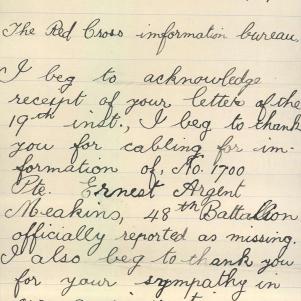 The Red Cross imformation bureau.
I beg to acknowledge
receipt of your letter of the
19th inst., I beg to thank
you for cabling for im-
formation of, No. 1700
Pte. Ernest Argent
Meakins, 48th Battallion
officially reported as missing.
I also beg to thank you
for your sympathy in